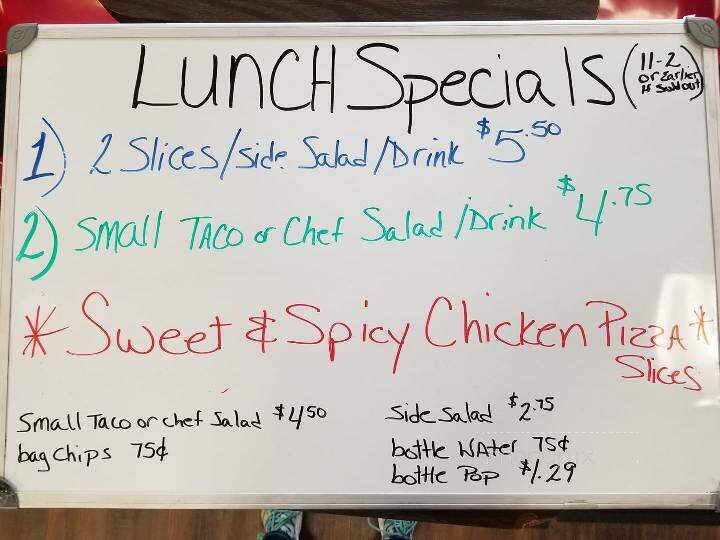 LUNCH Specials (11-2 or Earlier if Sold out)
1) 2 Slices/side Salad/Drink $5.50
2) Small Taco or Chef Salad/Drink $4.75
* Sweet & Spicy Chicken Pizza *
Slices
Small Taco or chef Salad $4 50
bag chips 75¢
Side salad $2.75
bottle Water 75¢
bottle Pop $1.29